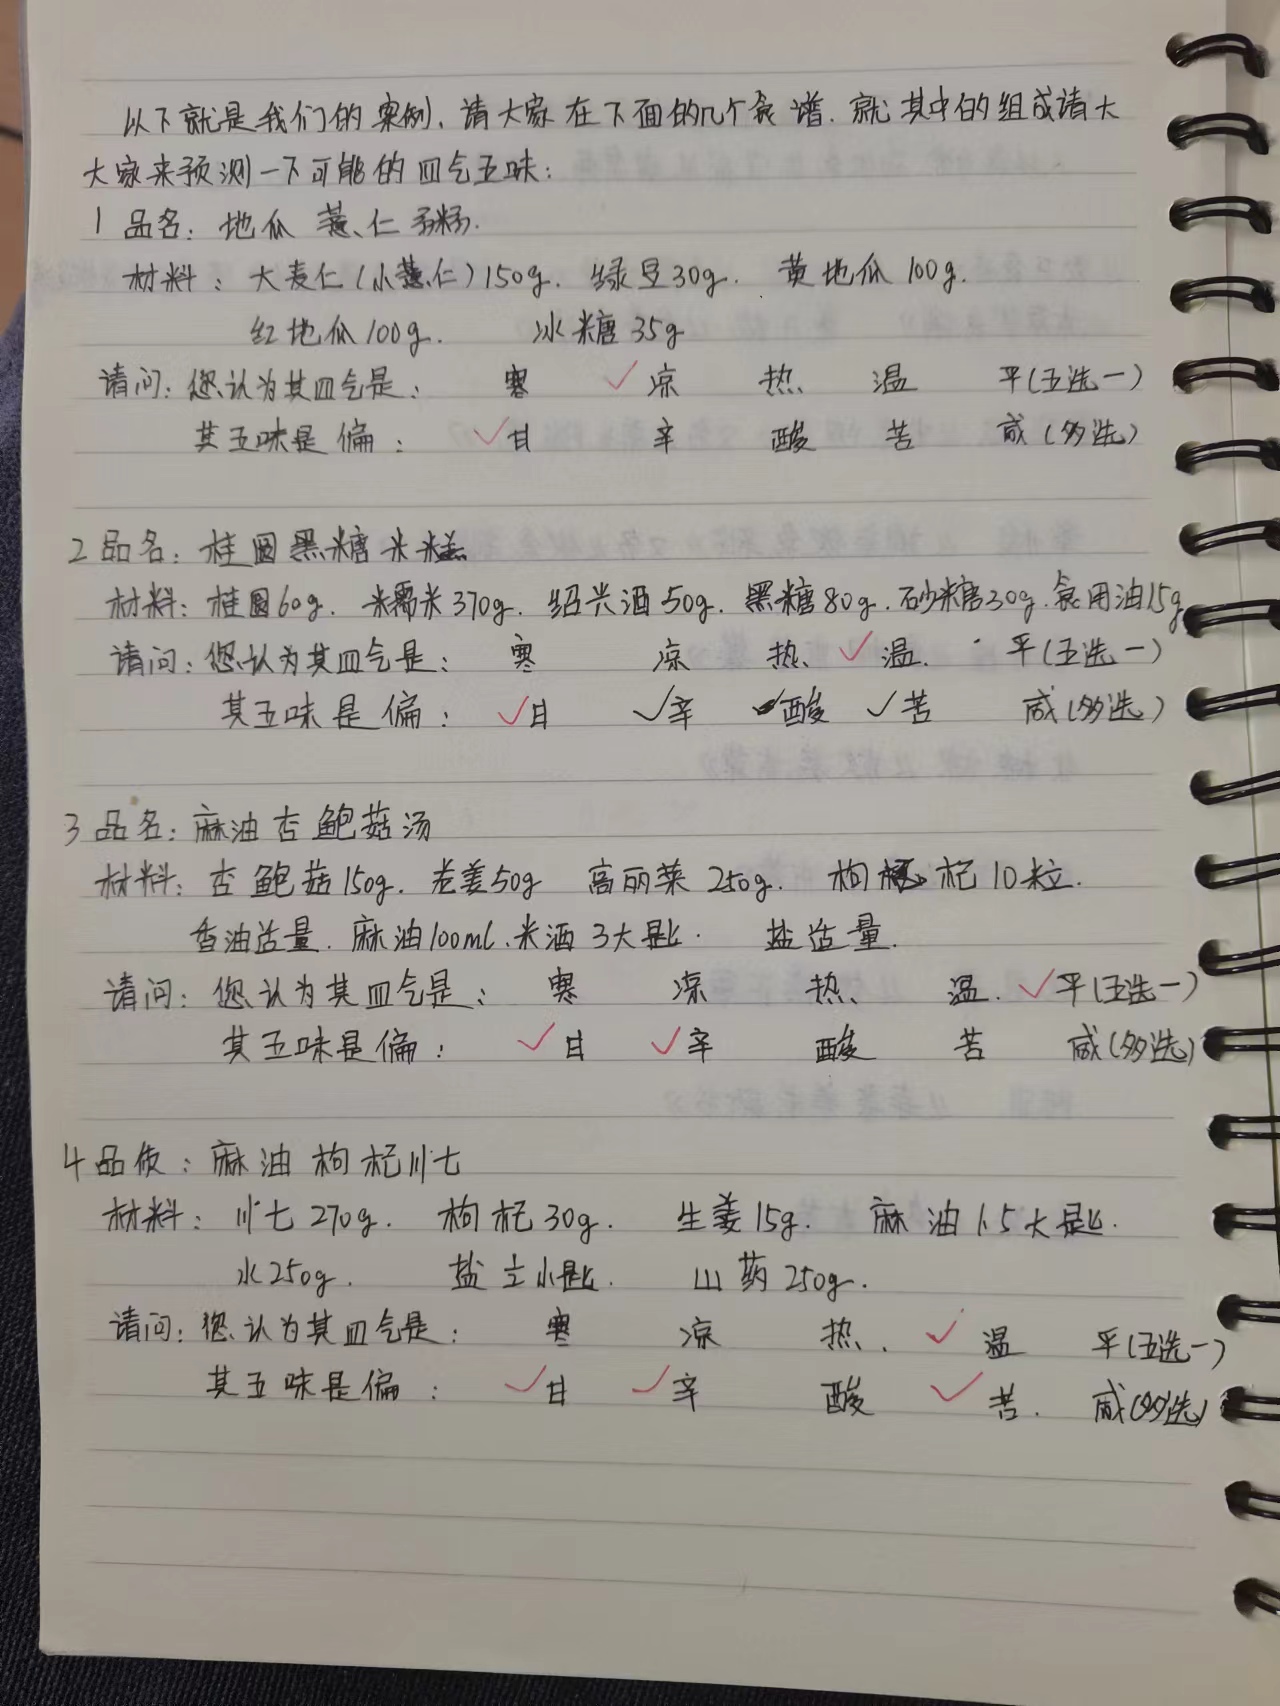 以下就是我们的案例、请大家在下面的几个食谱.就其中的组成请大
大家来预测一下可能的四气五味:
1 品名:地瓜薏仁粥.
材料:大麦仁(小薏仁)150g. 绿豆30g. 黄地瓜100g.
红地瓜100g. 冰糖35g
请问:您认为其四气是: 寒 ✓凉 热 温 平(五选一)
其五味是偏: ✓甘 辛 酸 苦 咸(多选)
2 品名:桂圆黑糖米糕
材料:桂圆60g. 糯米370g. 绍兴酒50g. 黑糖80g.砂糖30g.食用油15g
请问:您认为其四气是: 寒 凉 热 ✓温. 平(五选一)
其五味是偏: ✓甘 ✓辛 ✓酸 ✓苦 咸(多选)
3 品名:麻油杏鲍菇汤
材料:杏鲍菇150g. 老姜50g 高丽菜250g. 枸杞10粒.
香油适量. 麻油100ml.米酒3大匙. 盐适量.
请问:您认为其四气是: 寒 凉 热 温. ✓平(五选一)
其五味是偏: ✓甘 ✓辛 酸 苦 咸(多选)
4 品: 麻油枸杞川七
材料: 川七270g. 枸杞30g. 生姜15g. 麻油1.5大匙.
水250g. 盐小匙. 山药250g.
请问:您认为其四气是: 寒 凉 热. ✓温 平(五选一)
其五味是偏: ✓甘 ✓辛 酸 ✓苦. 咸(多选)